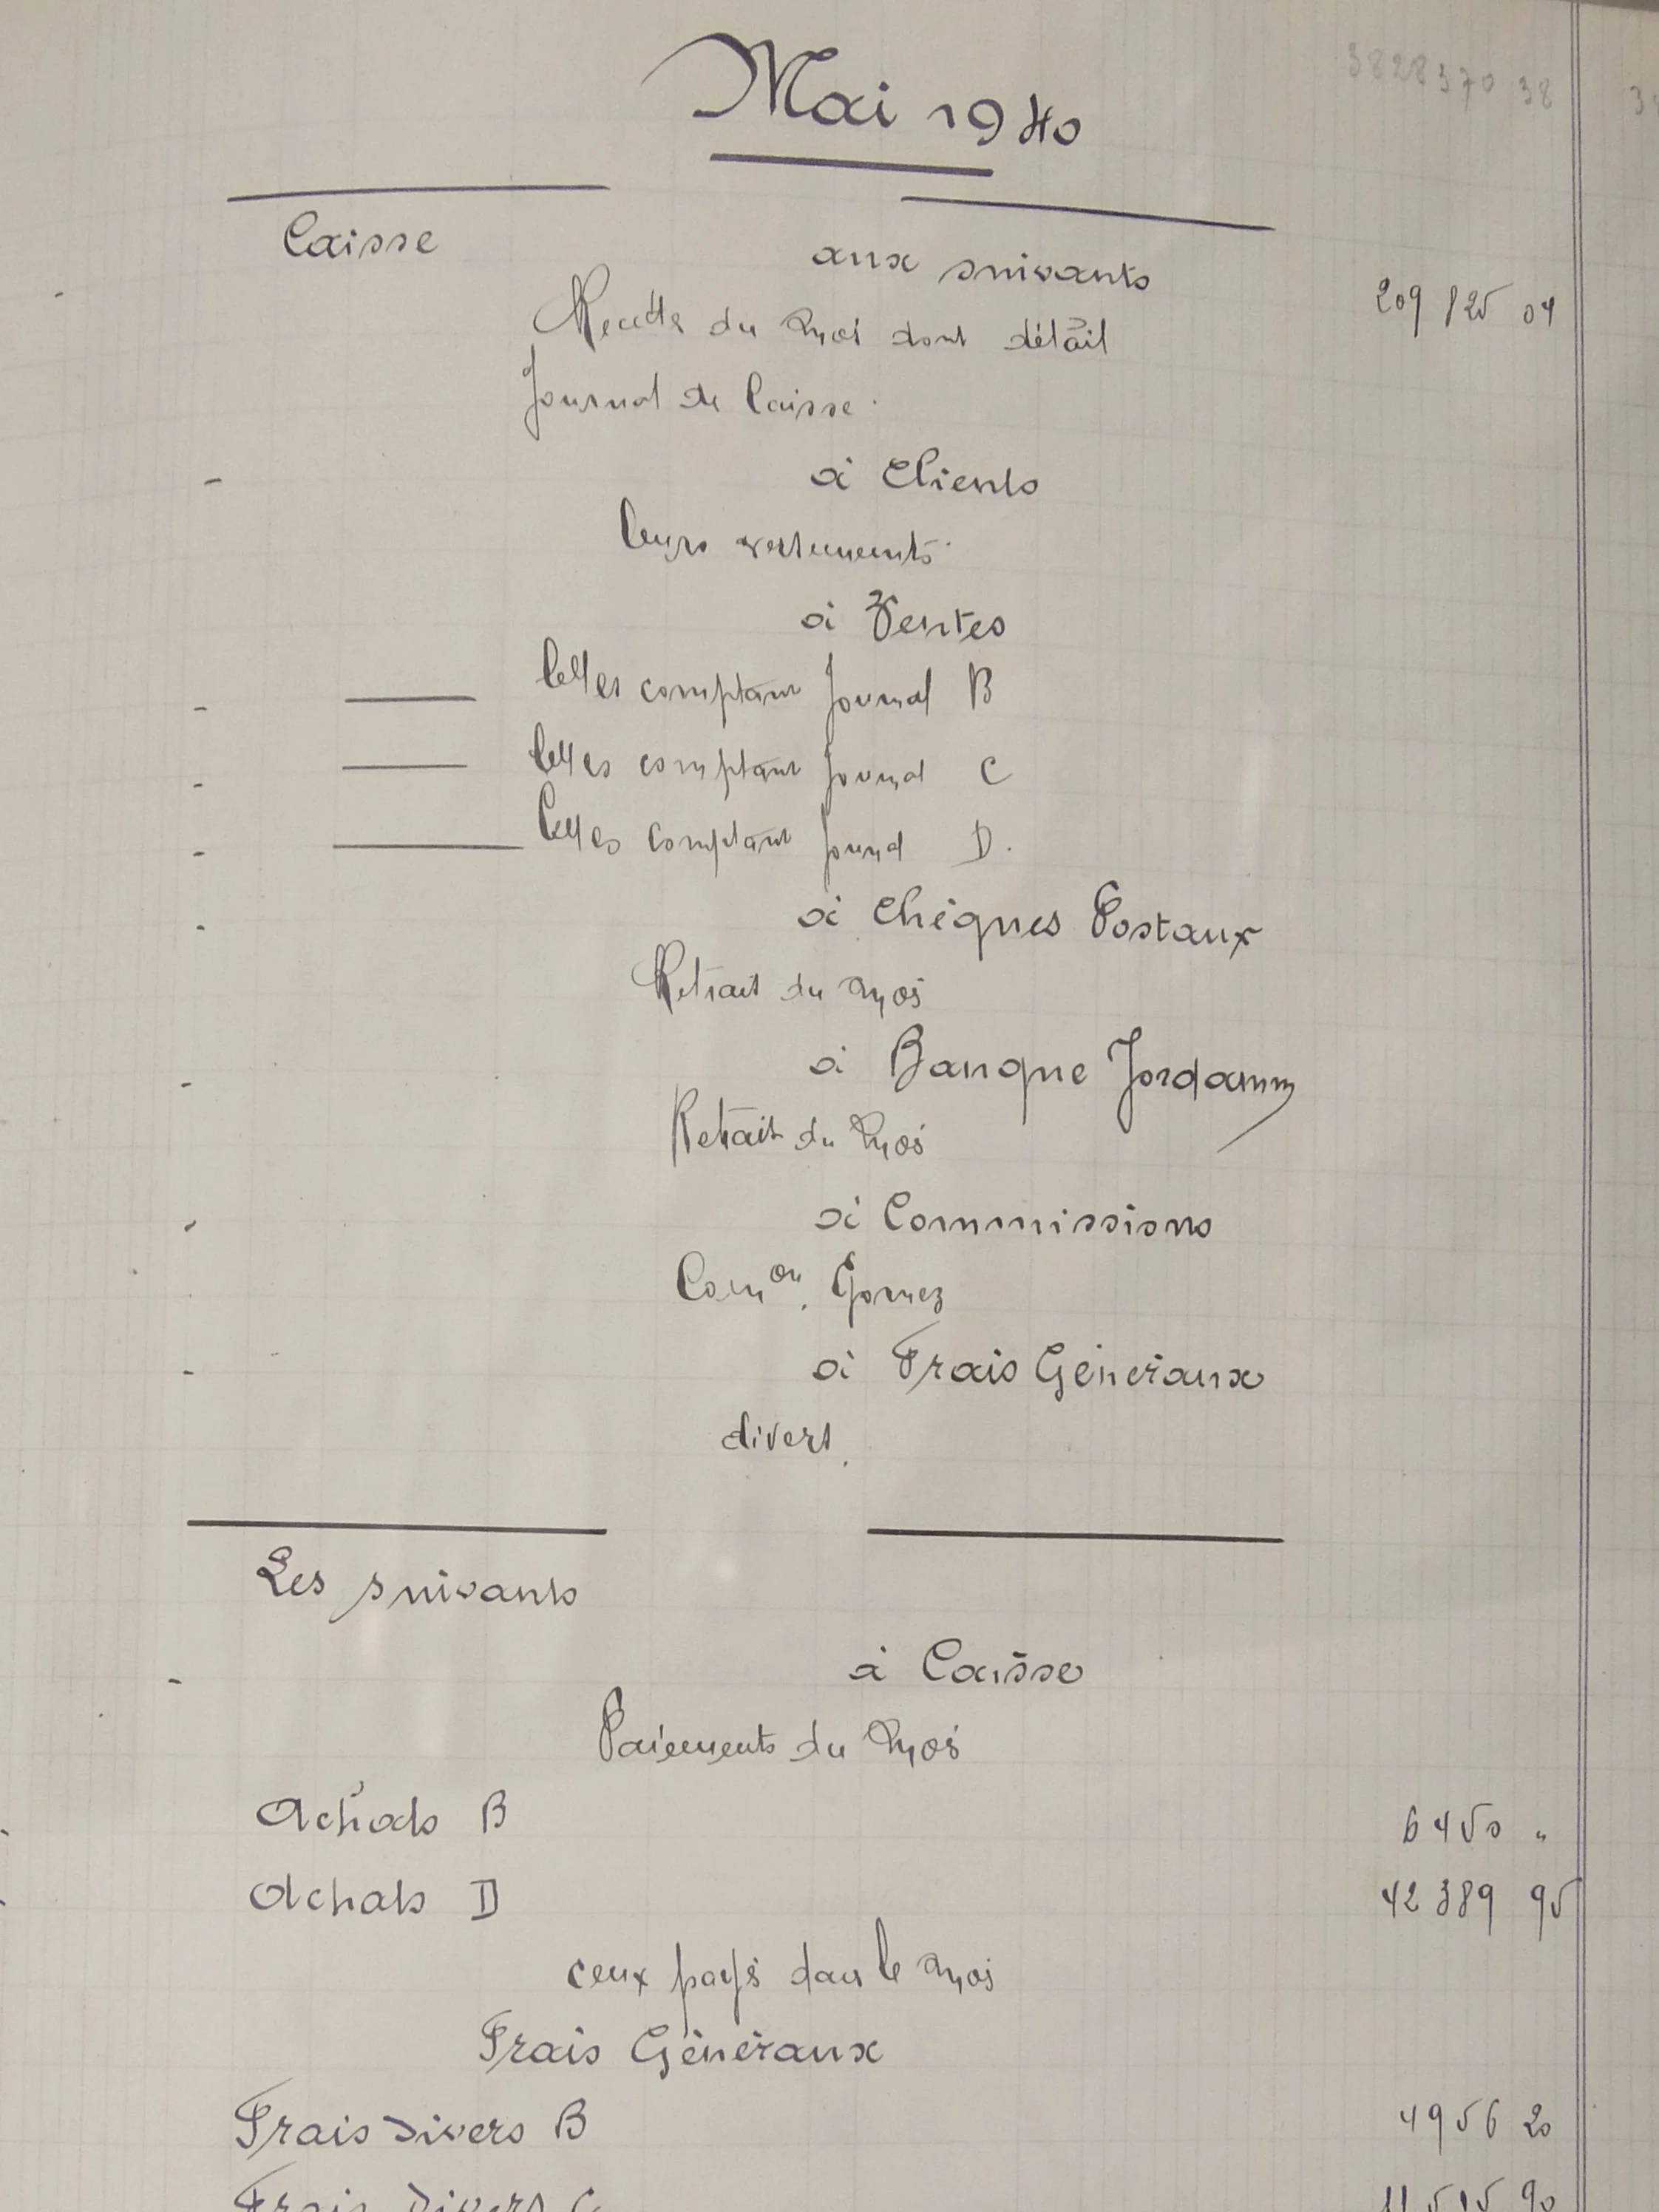 Mai 1940
3828370 38
Caisse aux suivants
Recette du mois dont détail 209 825 04
Journal de Caisse.
à Clients
leurs versements.
à Ventes
Celles comptant Journal B
Celles comptant Journal C
Celles comptant Journal D.
à Chèques Postaux
Retrait du mois
à Banque Jordaan
Retrait du mois
à Commissions
Comon. Gomez
à Frais Généraux
divers.
Les suivants
à Caisse
Paiements du mois
Achats B 6450 "
Achats D 42 389 95
ceux payés dans le mois
Frais Généraux
Frais Divers B 4956 20
Frais Divers C 11 515 90